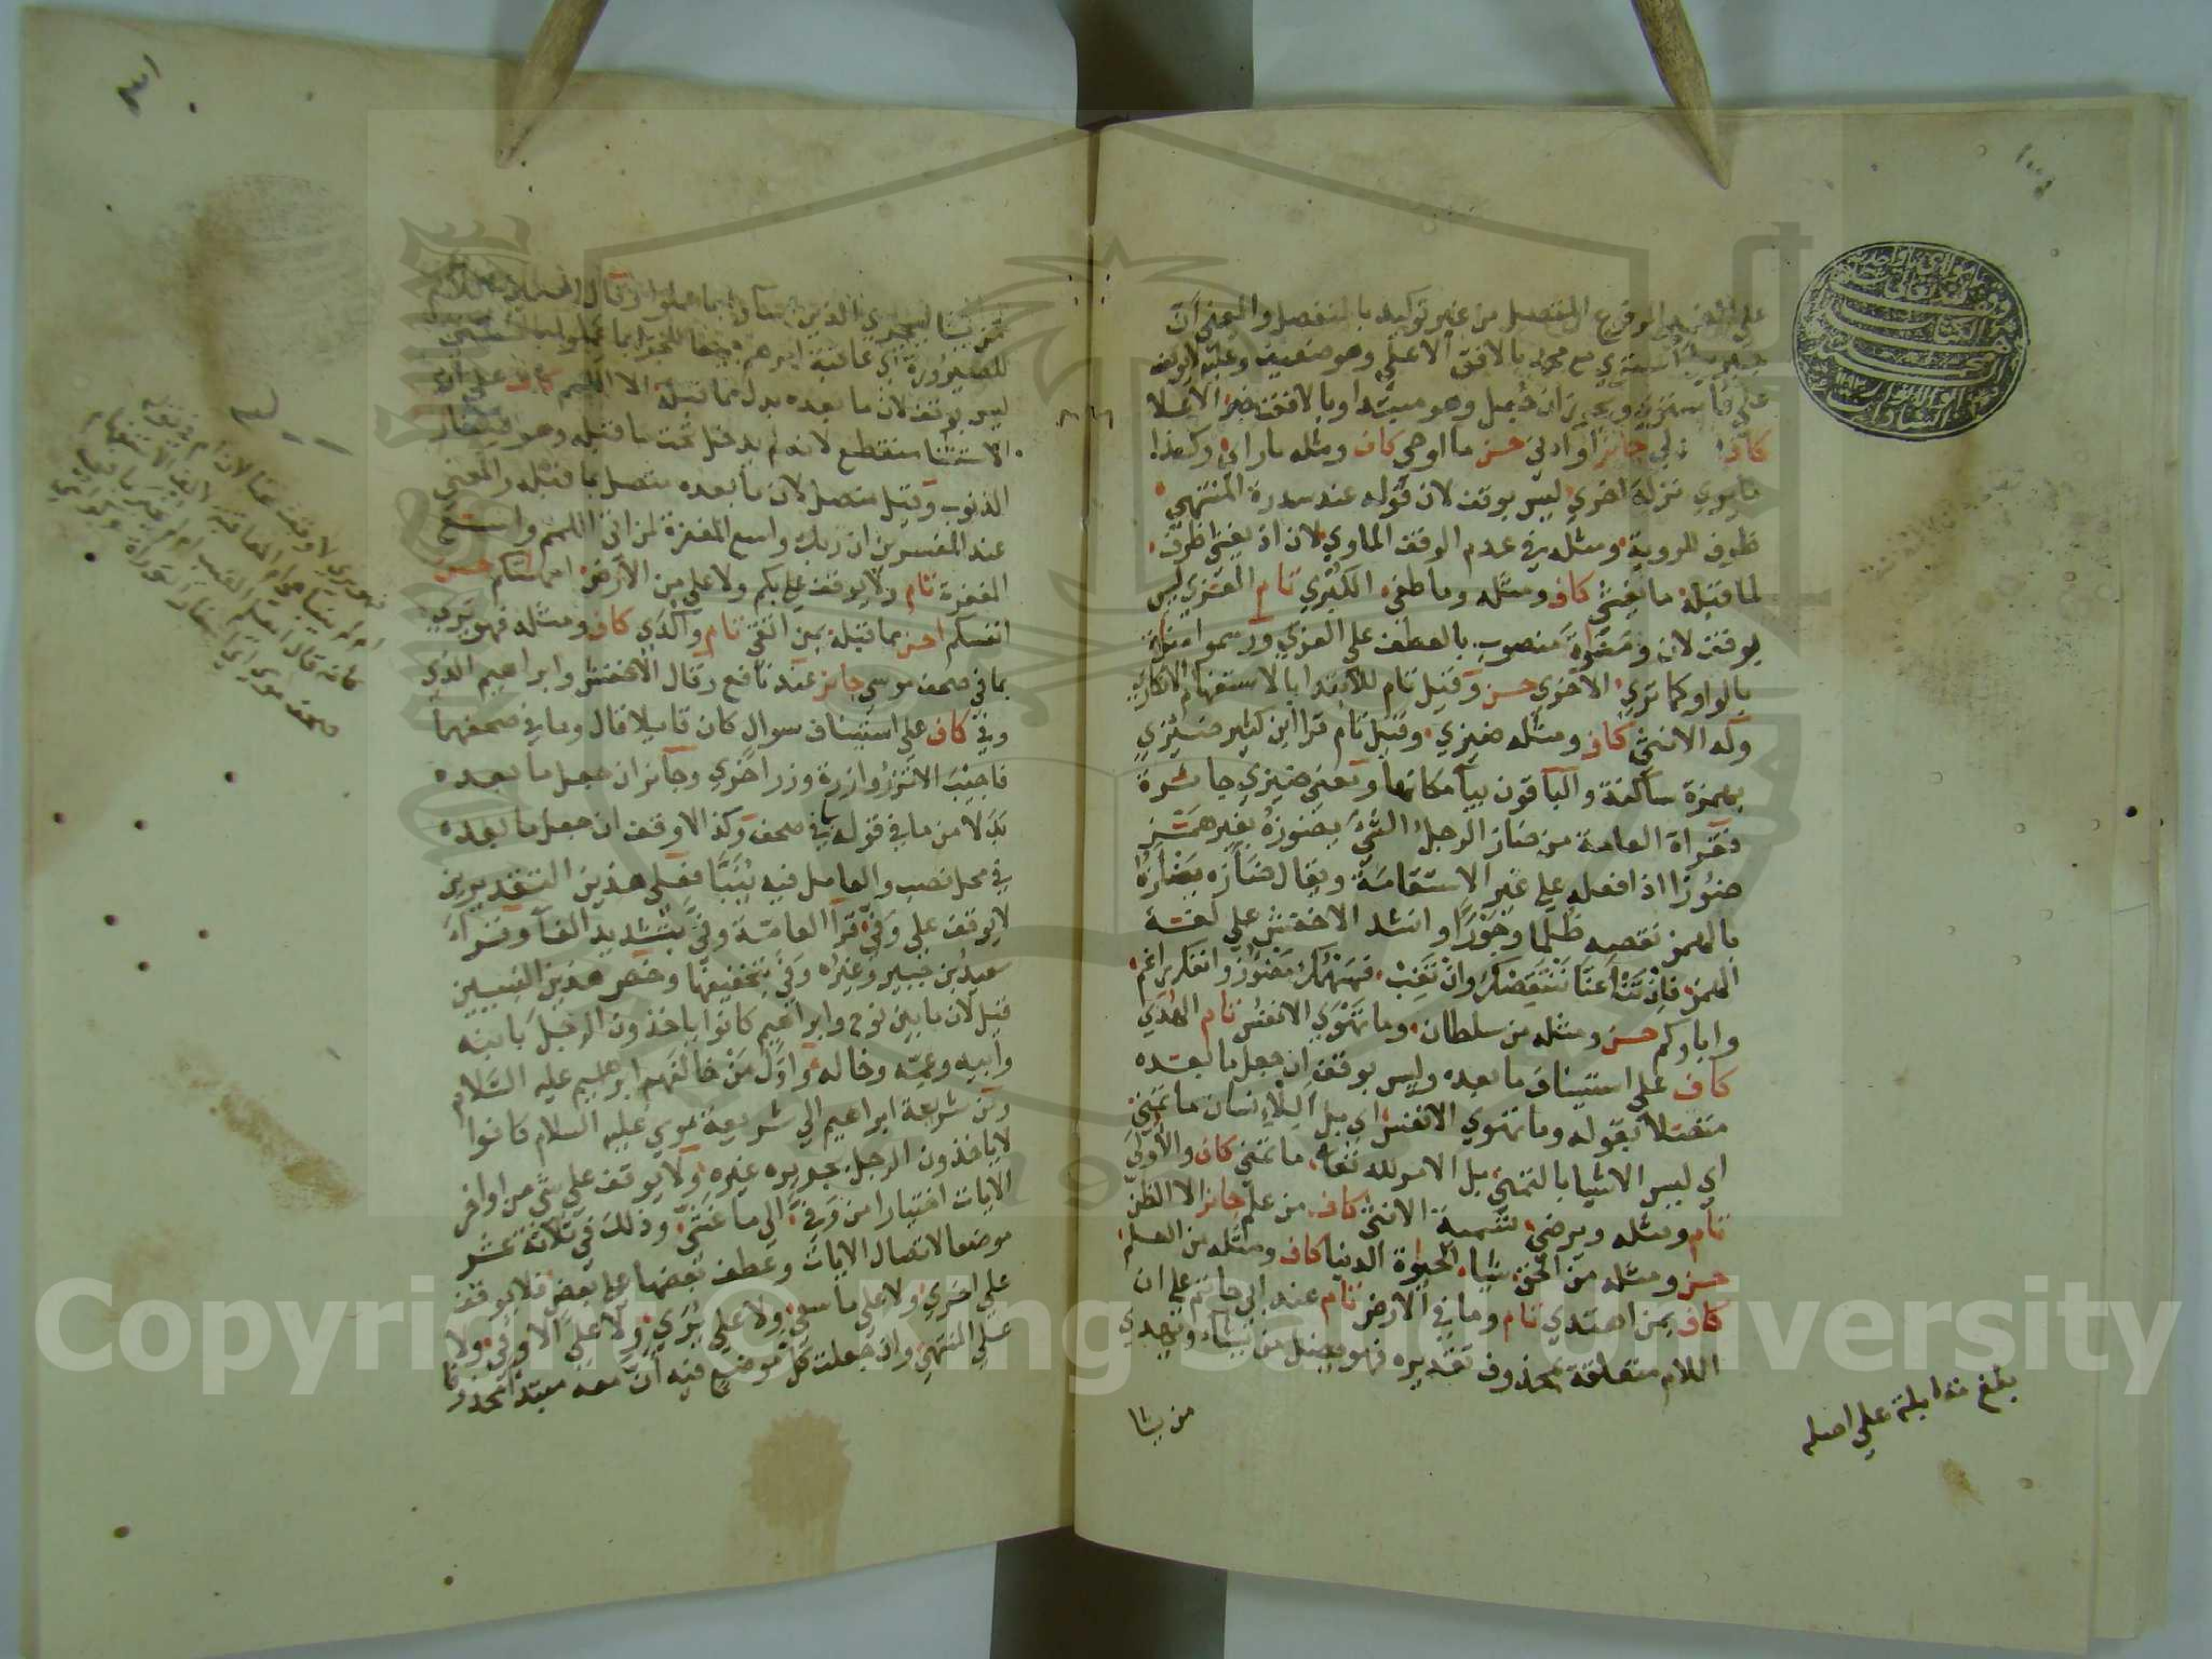 على الضمير المرفوع المتصل من غير توكيد بالمنفصل والمعنى ان
جبريل استوى مع محمد بالافق الاعلى وهو ضعيف وعليه لا يوقف
على فاستوى ويجوز ان جعل وهو مبتدا وبالافق خبر الاعلا
كاف جائز او ادنى حسن ما اوحى كاف ومثله ما راى وكذا
ما يرى نزلة اخرى ليس بوقف لان قوله عند سدرة المنتهى
ظرف للروية ومثله في عدم الوقف الماوي لان اذ يغشى ظرف
لما قبله ما يغشى كاف ومثله وما طغى الكبرى تام العزى ليس
بوقف لان ومنوة منصوب بالعطف على العزى ورسموا منوة
بالواو كما ترى الاخرى حسن وقيل تام للابتدا بالاستفهام الانكاري
وله الانثى كاف ومثله ضيزى وقيل تام قرا ابن كثير ضئيزى
بهمزة ساكنة والباقون بيا مكانها ومعنى ضيزى جائرة
فقراة العامة من ضاز الرجل الشئ يضوزه بغير همز
ضوزا اذا فعله على غير الاستقامة ويقال ضازه يضازه
بالهمز نقصه ظلما وجورا وانشد الاخفش على لغة
الهمز فان تنا عنا ننتقصك وان تغب فسهمك مضؤز وانفك راغم
واباوكم حسن ومثله من سلطان وما تهوى الانفس تام الهدى
كاف على استيناف ما بعده وليس بوقف ان جعل ما بعده
متصلا بقوله وما تهوى الانفس اي بل اللانسان ما تمنى
اي ليس الاشيا بالتمني بل الامر لله تعالى ما تمنى كاف والاولى
تام ومثله ويرضى تسمية الانثى كاف من علم جائز الا الظن
حسن ومثله من الحق شيا الحيوة الدنيا كاف ومثله من العلم
كاف بمن اهتدى تام وما في الارض تام عند ابي حاتم على ان
اللام متعلقة بمحذوف تقديره فهو يضل من يشاء ويهدي
من يشا
بلغ مقابلة على اصله
من يشا ليجزي الذين اساوا بما عملوا وقال السمين اللام
للصيرورة اي عاقبة امرهم جميعا للجزا بما عملوا بالحسنى
ليس بوقف لان ما بعده بدل مما قبله الا اللمم كاف على ان
الاستثنا منقطع لانه لم يدخل تحت ما قبله وهو صغار
الذنوب وقيل متصل لان ما بعده متصل بما قبله والمعنى
عند المفسرين ان ربك واسع المغفرة لمن اتى اللمم واسع
المغفرة تام ولا يوقف على بكم ولا على من الارض امهاتكم حسن
انفسكم احسن مما قبله بمن اتقى تام واكدى كاف ومثله فهو يرى
بما في صحف موسى جائز عند نافع وقال الاخفش وابراهيم الذي
وفى كاف على استيناف سوال كان قايلا قال وما في صحفهما
فاجيب الا تزر وازرة وزر اخرى وجائز ان جعل ما بعده
بدلا من ما في قوله بما في صحف وكذا لا وقف ان جعل ما بعده
في محل نصب والعامل فيه ينبا فعلى هذين التقديرين
لا يوقف على وفى قرا العامة وفى بتشديد الفا وقراة
سعيد بن جبير وغيره وفى بتخفيفها وخص هذين النبيين
قيل لان ما بين نوح وابراهيم كانوا ياخذون الرجل بابنه
وابيه وعمه وخاله واول من خالفهم ابراهيم عليه السلام
ومن شريعة ابراهيم الى شريعة موسى عليه السلام كانوا
لا ياخذون الرجل بجريره غيره ولا يوقف على شئ من اواخر
الايات اختيارا من وفى الى ما غشى وذلك في ثلاثة عشر
موضعا لاتصال الايات وعطف بعضها على بعض فلا يوقف
على اخرى ولا على ما سعى ولا على يرى ولا على الاوفى ولا
على المنتهى وان جعلت كل موضع فيه ان معه مبتدا محذوفا
Copyright © King Saud University